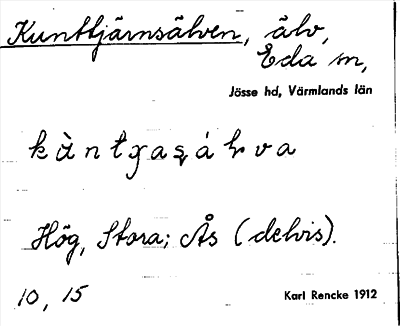 Kunttjärnsälven, älv,
Eda sn,
Jösse hd, Värmlands län
Hög, Stora; Ås (delvis).
10, 15 Karl Rencke 1912